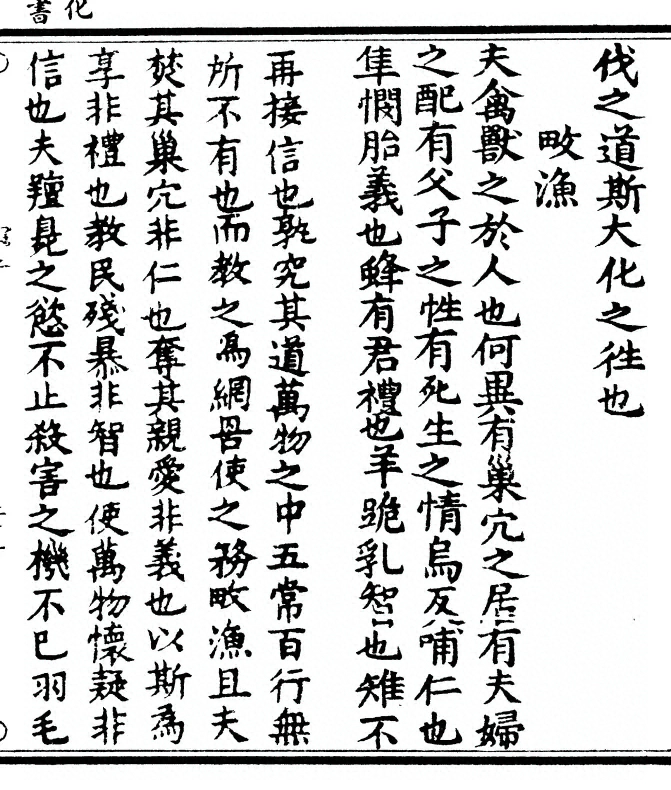 化書
伐之道斯大化之徃也
畋漁
夫禽獸之於人也何異有巢穴之居有夫婦
之配有父子之性有死生之情烏反哺仁也
隼憫胎義也蜂有君禮也羊跪乳智也雉不
再接信也孰究其道萬物之中五常百行無
所不有也而教之爲網罟使之務畋漁且夫
焚其巢穴非仁也奪其親愛非義也以斯爲
享非禮也教民殘暴非智也使萬物懷疑非
信也夫羶臭之慾不止殺害之機不已羽毛